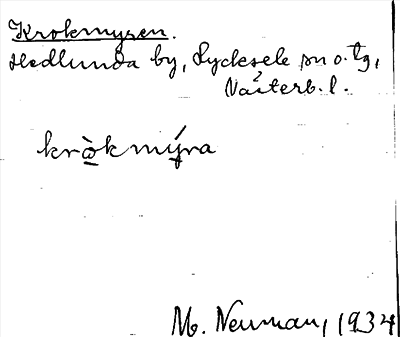 Krokmyren.
Hedlunda by, Lycksele sn o. tg,
Västerb. l.
kròkmýra
M. Neuman, 1934